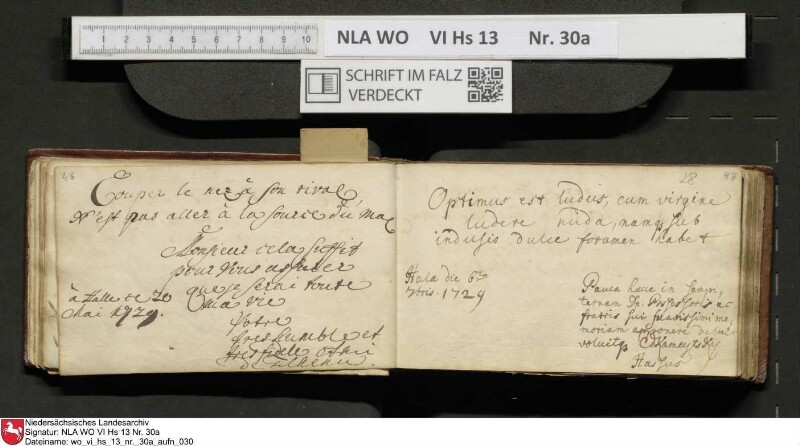 1 2 3 4 5 6 7 8 9 10
NLA WO VI Hs 13 Nr. 30a
SCHRIFT IM FALZ
VERDECKT
46
Couper le nez à son rival
N'est pas aller à la source du mal
Monsieur cela suffit
pour vous assurer
que je serai toute
ma vie
à Halle ce 20
Mai 1729.
Votre
tres humble et
tres fidele
28 47
Optimus est ludus, cum virgine
ludere nuda, namq; sub
indusio dulce foramen habet
Hala die 6te
1729
Pauca haec in
fratris sui
moriam apponere
voluit
Niedersächsisches Landesarchiv
Signatur: NLA WO VI Hs 13 Nr. 30a
Dateiname: wo_vi_hs_13_nr._30a_aufn_030